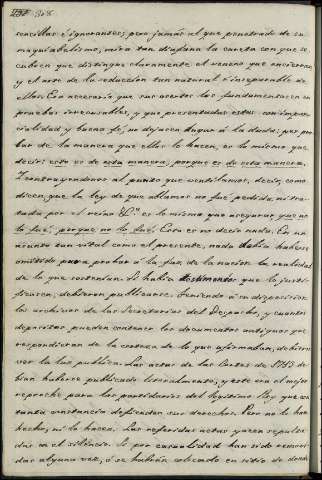 308
sencillas é ignorantes; pero jamás al que penetrado de su
maquiabelismo, mira tan diafana la careta con que se
cubren que distingue claramente el veneno que encierran,
y el arte de la seduccion tan natural é inseparable de
ellas. Era necesario que sus asertos los fundamentasen en
pruebas irrecusables, y que presentadas estas con impar-
cialidad y buena fé, no dejasen lugar á la duda: pues pro-
bar de la manera que ellos lo hacen, es lo mismo que
decir: esto es de esta manera, porque es de esta manera.
Y contrayendonos al punto que ventilamos, decir, como
dicen, que la ley de que ablamos no fue pedida ni tra-
tada por el reino &c. es lo mismo que asegurar que no
lo fué, porque no lo fué. Esto es no decir nada. En un
asunto tan vital como el presente, nada debia haberse
omitido para probar á la faz de la nacion la realidad
de lo que sostenian. Si habia testimonios que lo justi-
ficasen, debieron publicarse. Teniendo á su disposicion
los archivos de las Secretarias del Despacho, y cuantos
depositos pueden contener los documentos antiguos que
respondieran de la certeza de lo que afirmaban, debieron
ver la luz publica. Las actas de las Cortes de 1713 de-
bian haberse publicado literalmente, y este era el mejor
reproche para los partidarios del legitimo Rey que con
tanta constancia defienden sus derechos. Pero no lo han
hecho, ni lo haran. Las referidas actas yacen sepulta-
das en el silencio. Si por casualidad han sido removi-
das alguna vez, ó se habrán colocado en sitio de donde